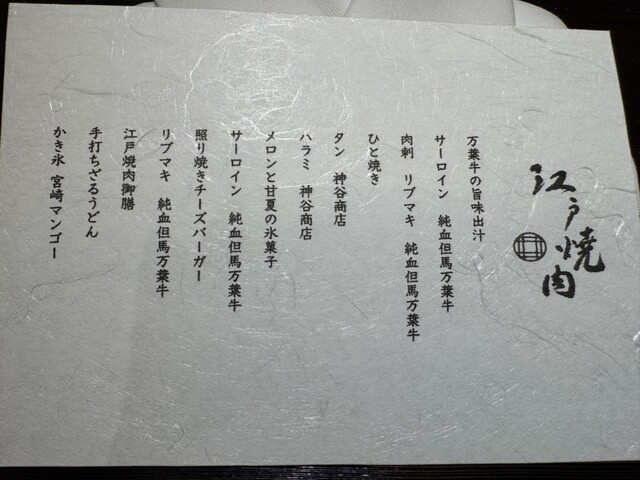 江戸焼肉
万葉牛の旨味出汁
サーロイン 純血但馬万葉牛
肉刺 リブマキ 純血但馬万葉牛
ひと焼き
タン 神谷商店
ハラミ 神谷商店
メロンと甘夏の氷菓子
サーロイン 純血但馬万葉牛
照り焼きチーズバーガー
リブマキ 純血但馬万葉牛
江戸焼肉御膳
手打ちざるうどん
かき氷 宮崎マンゴー